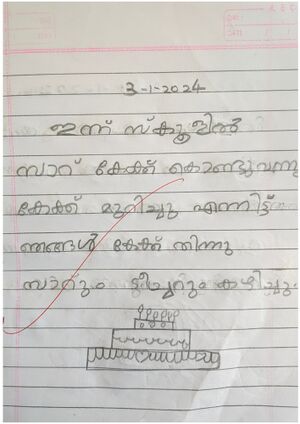 3-1-2024
ഇന്ന് സ്കൂളിൽ
സാറ് കേക്ക് കൊണ്ടുവന്നു
കേക്ക് മുറിച്ചു എന്നിട്ട്
ഞങ്ങൾ കേക്ക് തിന്നു
സാറും ടീച്ചറും കഴിച്ചു.